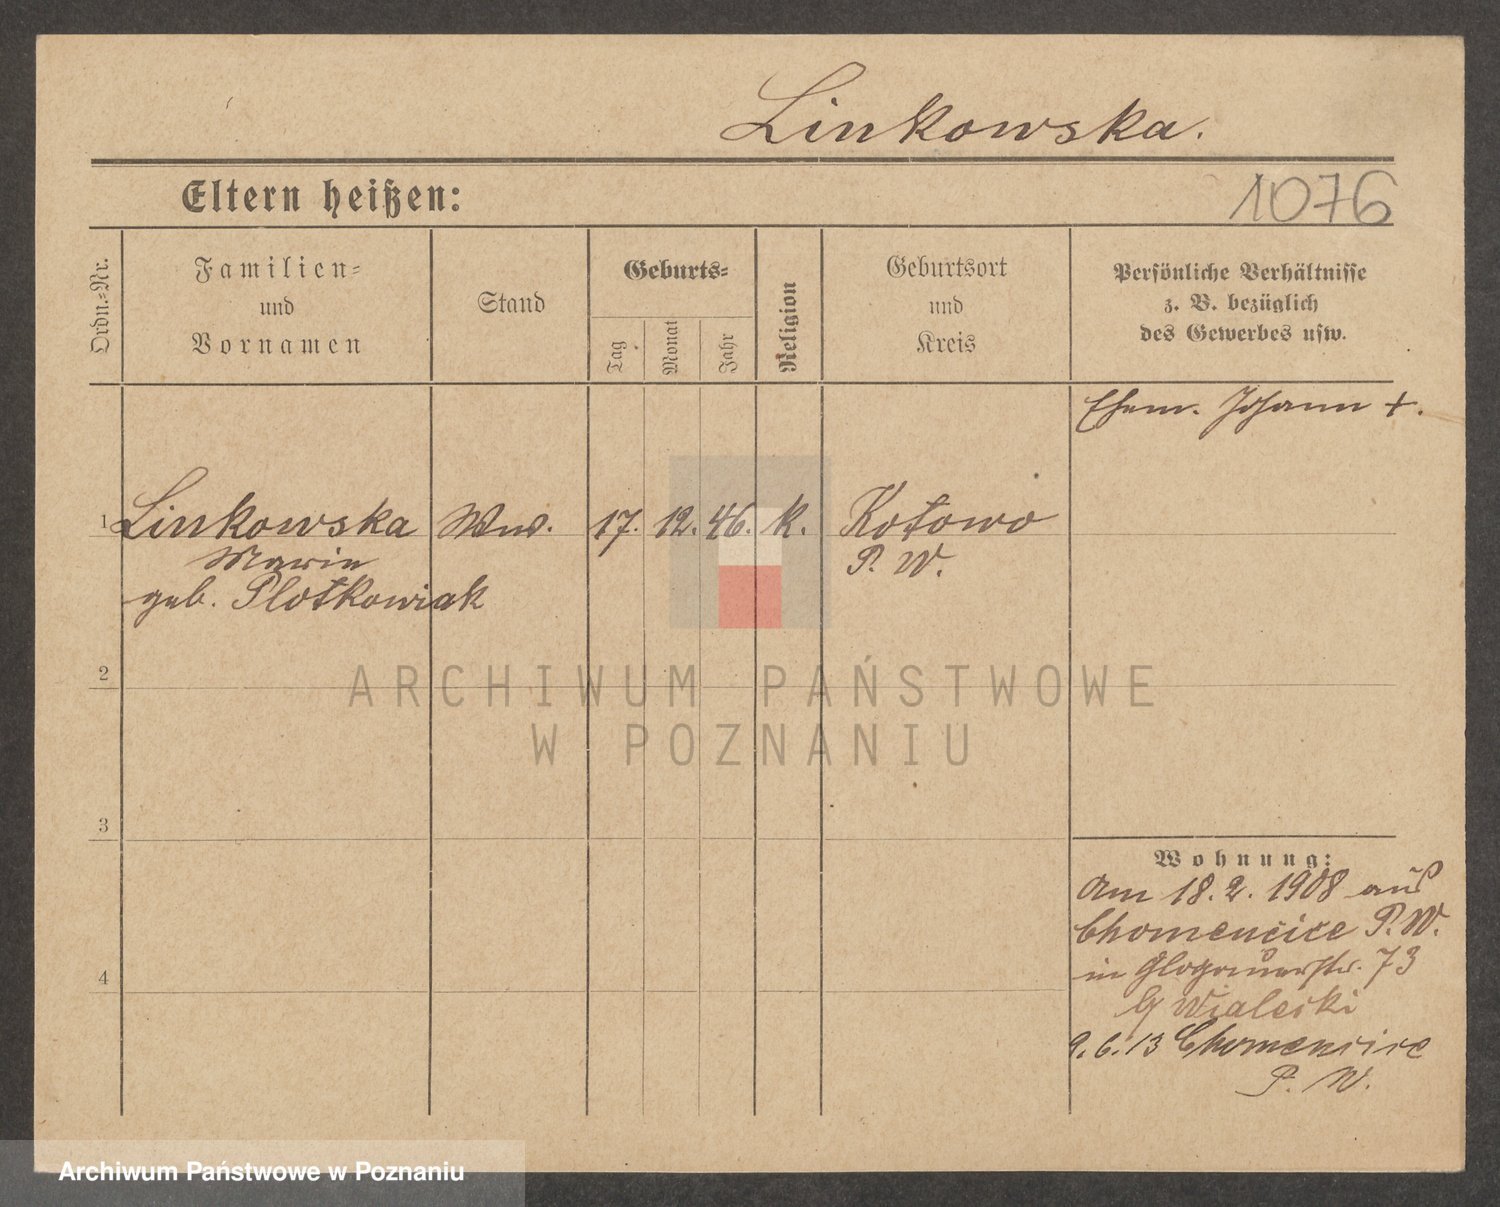 Linkowska.
Eltern heißen:
1076
Ordn.-Nr.
Familien-
und
Vornamen
Stand
Geburts-
Tag
Monat
Jahr
Religion
Geburtsort
und
Kreis
Persönliche Verhältnisse
z. B. bezüglich
des Gewerbes usw.
Ehem. Johann +.
1 Linkowska Ww. 17. 12. 46. k. Kotowo
Marie P. W.
geb. Plotkowiak
2
ARCHIWUM PAŃSTWOWE
W POZNANIU
3
Wohnung:
Am 18.2.1908 aus
Chomencice P. W.
in Glogauerstr. 73
b/ Wialecki
9.6.13 Chomencice
P. W.
4
Archiwum Państwowe w Poznaniu